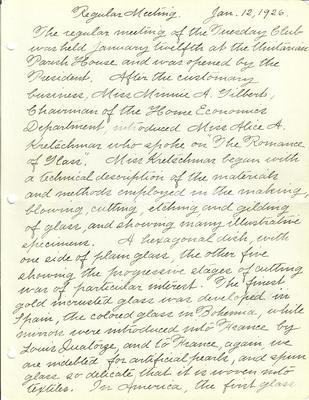 Regular Meeting. Jan. 12, 1926.
The regular meeting of the Tuesday Club
was held January twelfth at the Unitarian
Parish House and was opened by the
President. After the customary
business, Miss Minnie A. Gilbert,
Chairman of the Home Economics
Department, introduced Miss Alice A.
Kretschmar who spoke on "The Romance
of Glass". Miss Kretschmar began with
a technical description of the materials
and methods employed in the making,
blowing, cutting, etching and gilding
of glass, and showing many illustrative
specimens. A hexagonal dish, with
one side of plain glass, the other five
showing the progressive stages of cutting
was of particular interest. The finest
gold incrusted glass was developed in
Spain, the colored glass in Bohemia, while
mirrors were introduced into France by
Louis Quatorze, and to France, again, we
are indebted for artificial pearls, and spun
glass so delicate that it is woven into
textiles. In America, the first glass